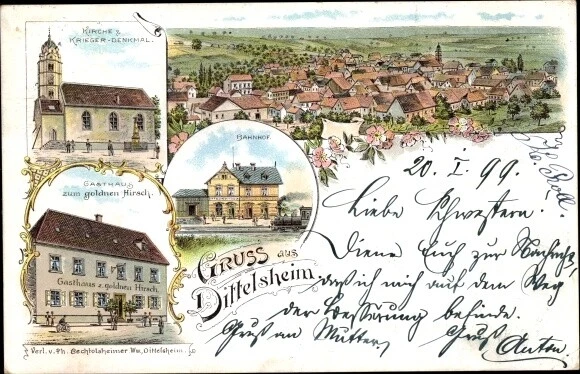 KIRCHE u.
KRIEGER-DENKMAL.
BAHNHOF.
GASTHAUS
zum goldnen Hirsch.
Gasthaus z. goldnen Hirsch.
GRUSS aus
Dittelsheim.
Verl. v. Ph. Bechtolsheimer Ww, Dittelsheim.
20. I. 99.
Liebe Schwestern.
Diene Euch zur Nachricht,
daß ich mich auf dem Weg
der Besserung befinde.
Gruß an Mutter,
Gruß Anton.